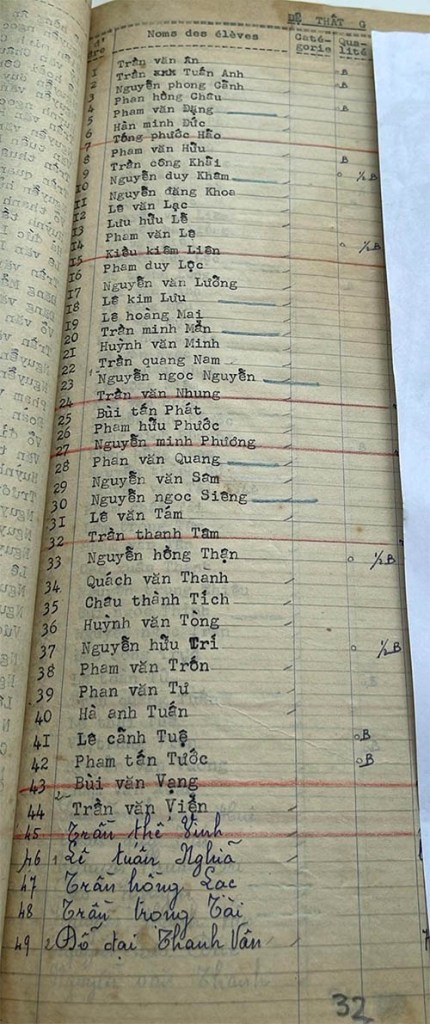 ĐỆ THẤT G
Noms des élèves Caté-gorie Qua-lité
1 Trần văn Ân B
2 Trần xxx Tuấn Anh
3 Nguyễn phong Cảnh B
4 Phan hồng Châu
5 Pham văn Đặng B
6 Hàn minh Đức
7 Tống phước Hảo
8 Pham văn Hữu
9 Trần công Khải B
10 Nguyễn duy Khâm ½B
11 Nguyễn đăng Khoa
12 Lê văn Lạc
13 Lưu hữu Lễ
14 Pham văn Lệ
15 Kiều kiêm Liên ½B
16 Pham duy Lộc
17 Nguyễn văn Lưỡng
18 Lê kim Lưu
19 Lê hoàng Mai
20 Trần minh Mẫn
21 Huỳnh văn Minh
22 Trần quang Nam
23 Nguyễn ngọc Nguyễn
24 Trần văn Nhung
25 Bùi tấn Phát
26 Pham hữu Phước
27 Nguyễn minh Phương
28 Phan văn Quang
29 Nguyễn văn Sâm
30 Nguyễn ngọc Siêng
31 Lê văn Tám
32 Trần thanh Tâm
33 Nguyễn hồng Thận ½B
34 Quách văn Thành
35 Châu thành Tích
36 Huỳnh văn Tòng
37 Nguyễn hữu Trí ½B
38 Pham văn Trốn
39 Phan văn Tư
40 Hà anh Tuấn
41 Lê cảnh Tuệ B
42 Pham tấn Tước B
43 Bùi văn Vạng
44 Trần văn Viễn
45 Trần thế Vinh
46 1 Lê tuấn Nghĩa
47 Trần hồng Lạc
48 Trần trọng Tài
49 2 Đỗ đại Thanh Vân
32